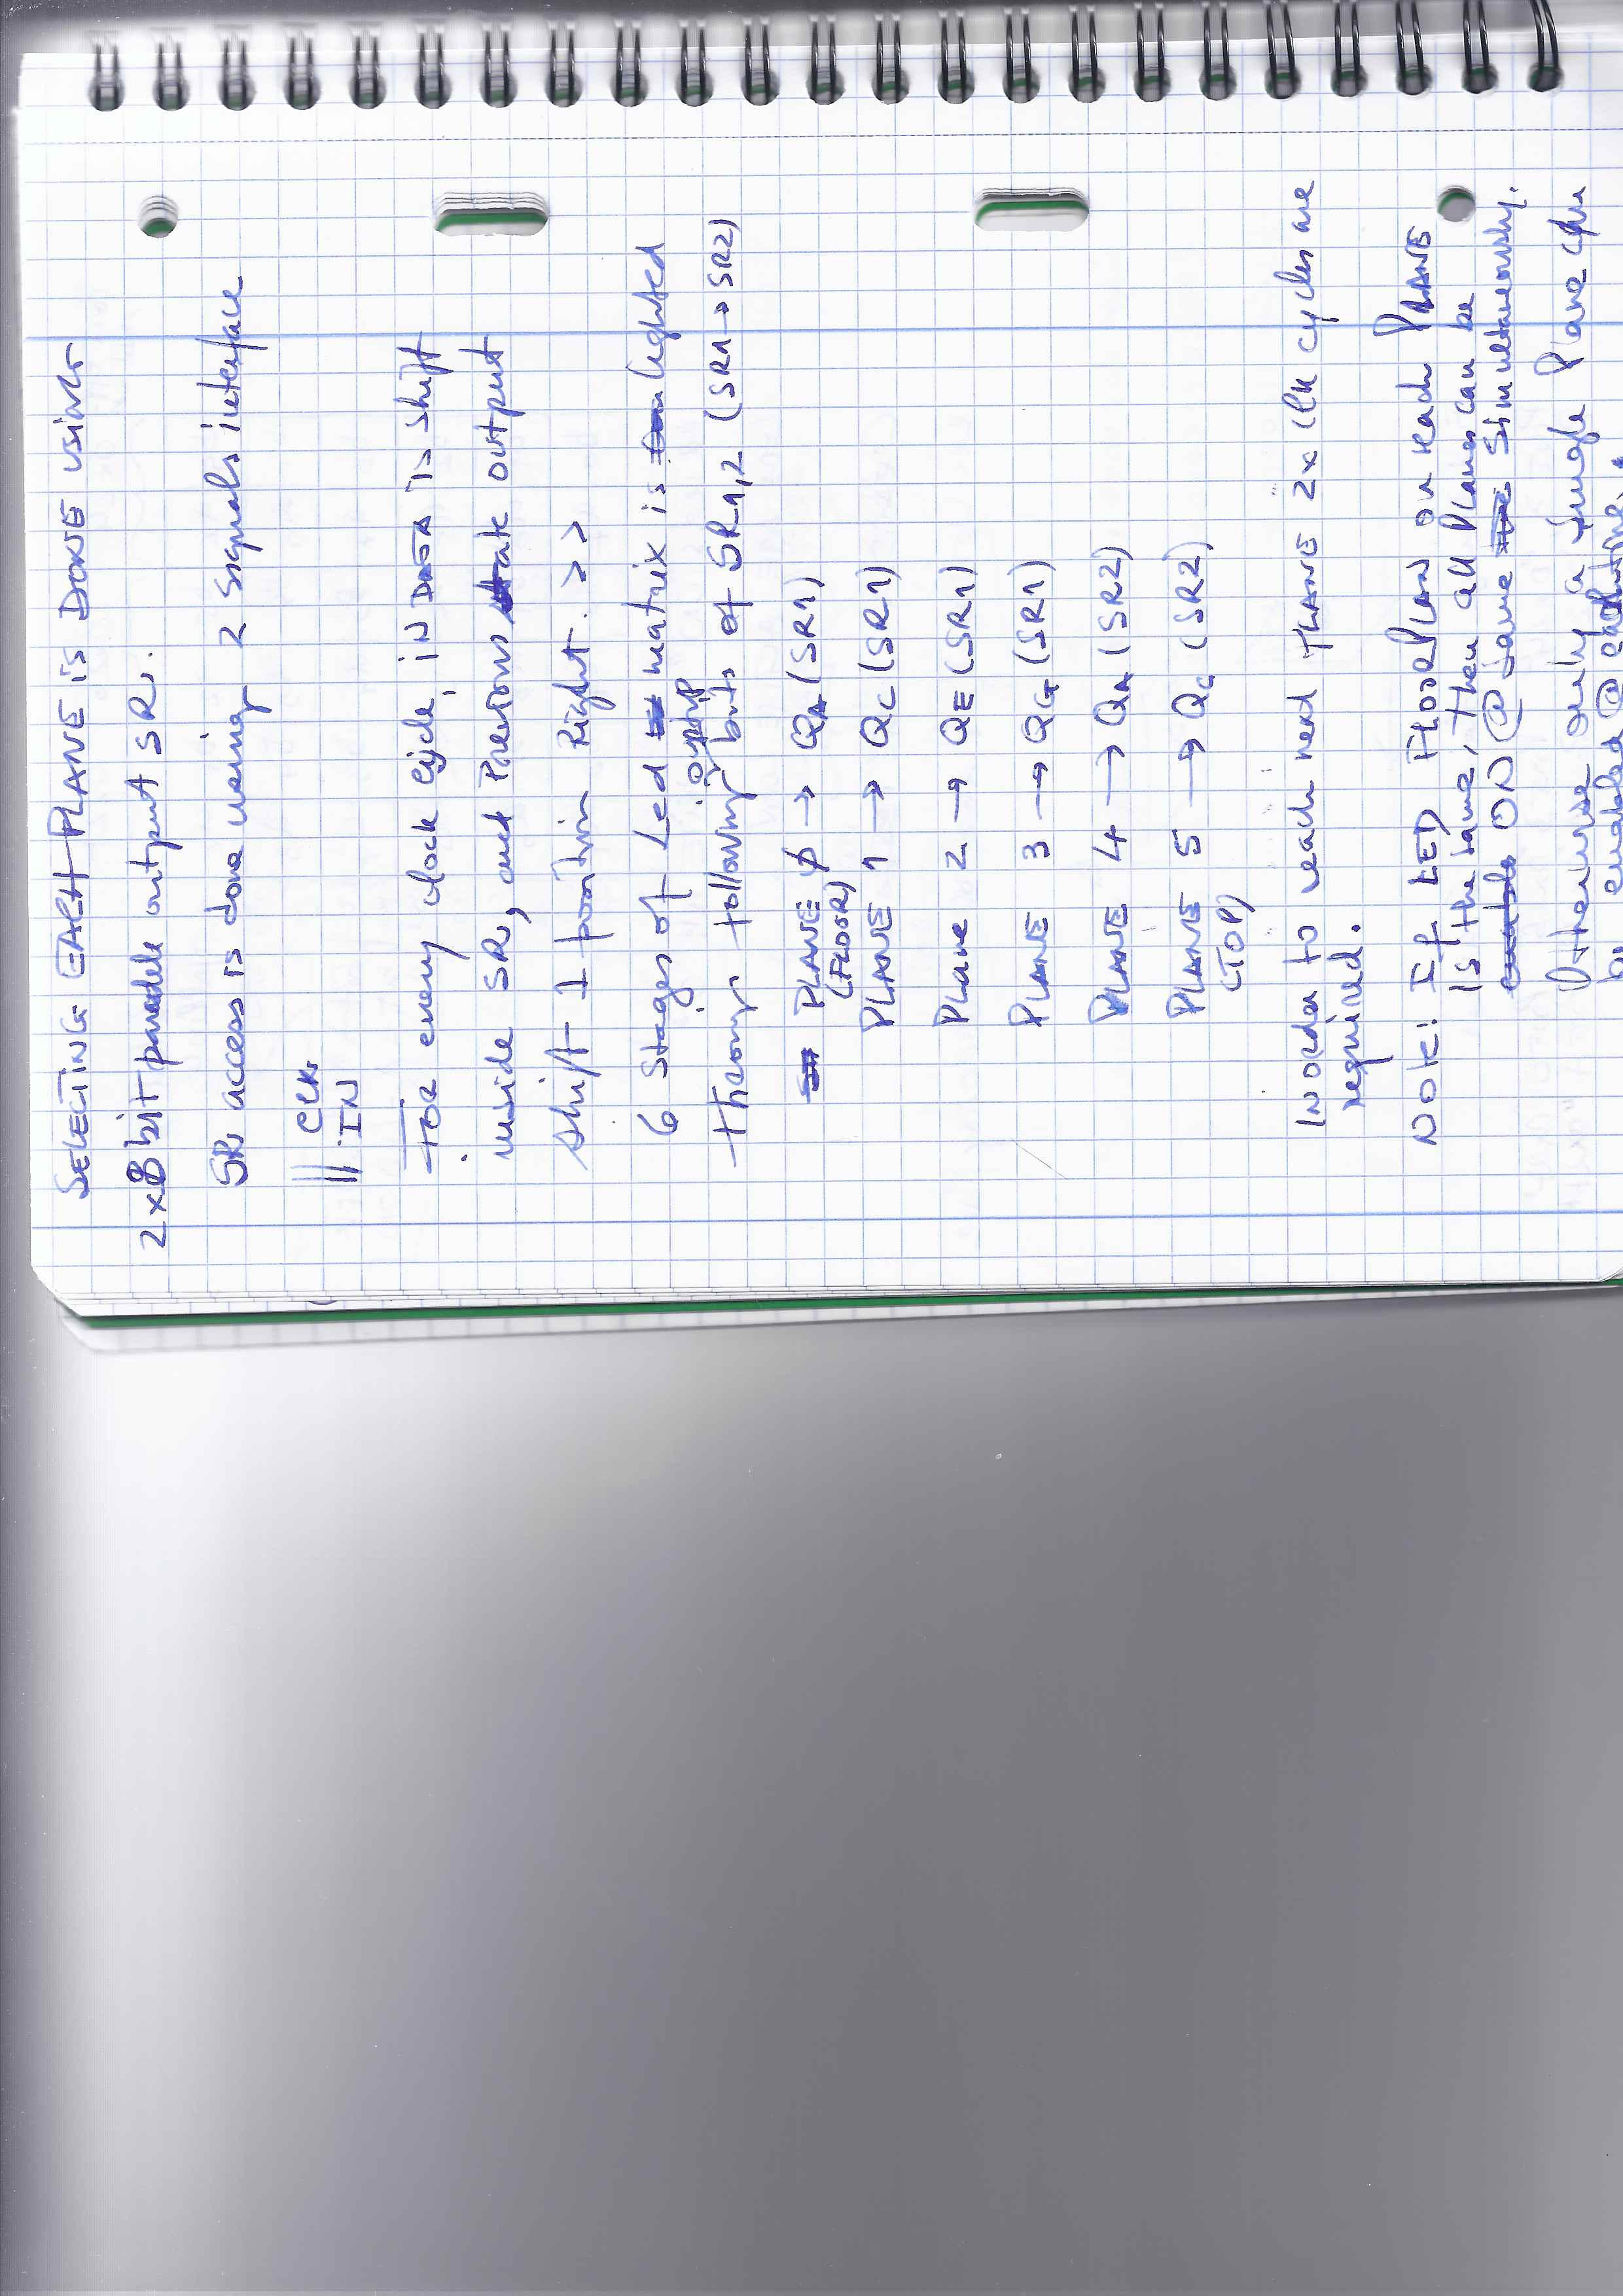 SELECTING EACH PLANE is DONE using
2x8 bit parallel output SR.
SR access is done using 2 signals interface
CLK
IN
For every clock cycle, IN DATA is shift
inside SR, and Previous state output
shift 1 position Right. >>
6 stages of Led matrix is lighted
output
through following bits of SR_1,2 (SR1→SR2)
PLANE 0 → QA (SR1)
(FLOOR)
PLANE 1 → QC (SR1)
Plane 2 → QE (SR1)
PLANE 3 → QG (SR1)
PLANE 4 → QA (SR2)
PLANE 5 → QC (SR2)
(TOP)
IN order to reach next PLANE 2x CLK cycles are
required.
Note: If LED FLOORPLAN on each PLANE
is the same, then all Planes can be
ON @ same time simultaneously.
Otherwise only a single Plane can
be enabled @